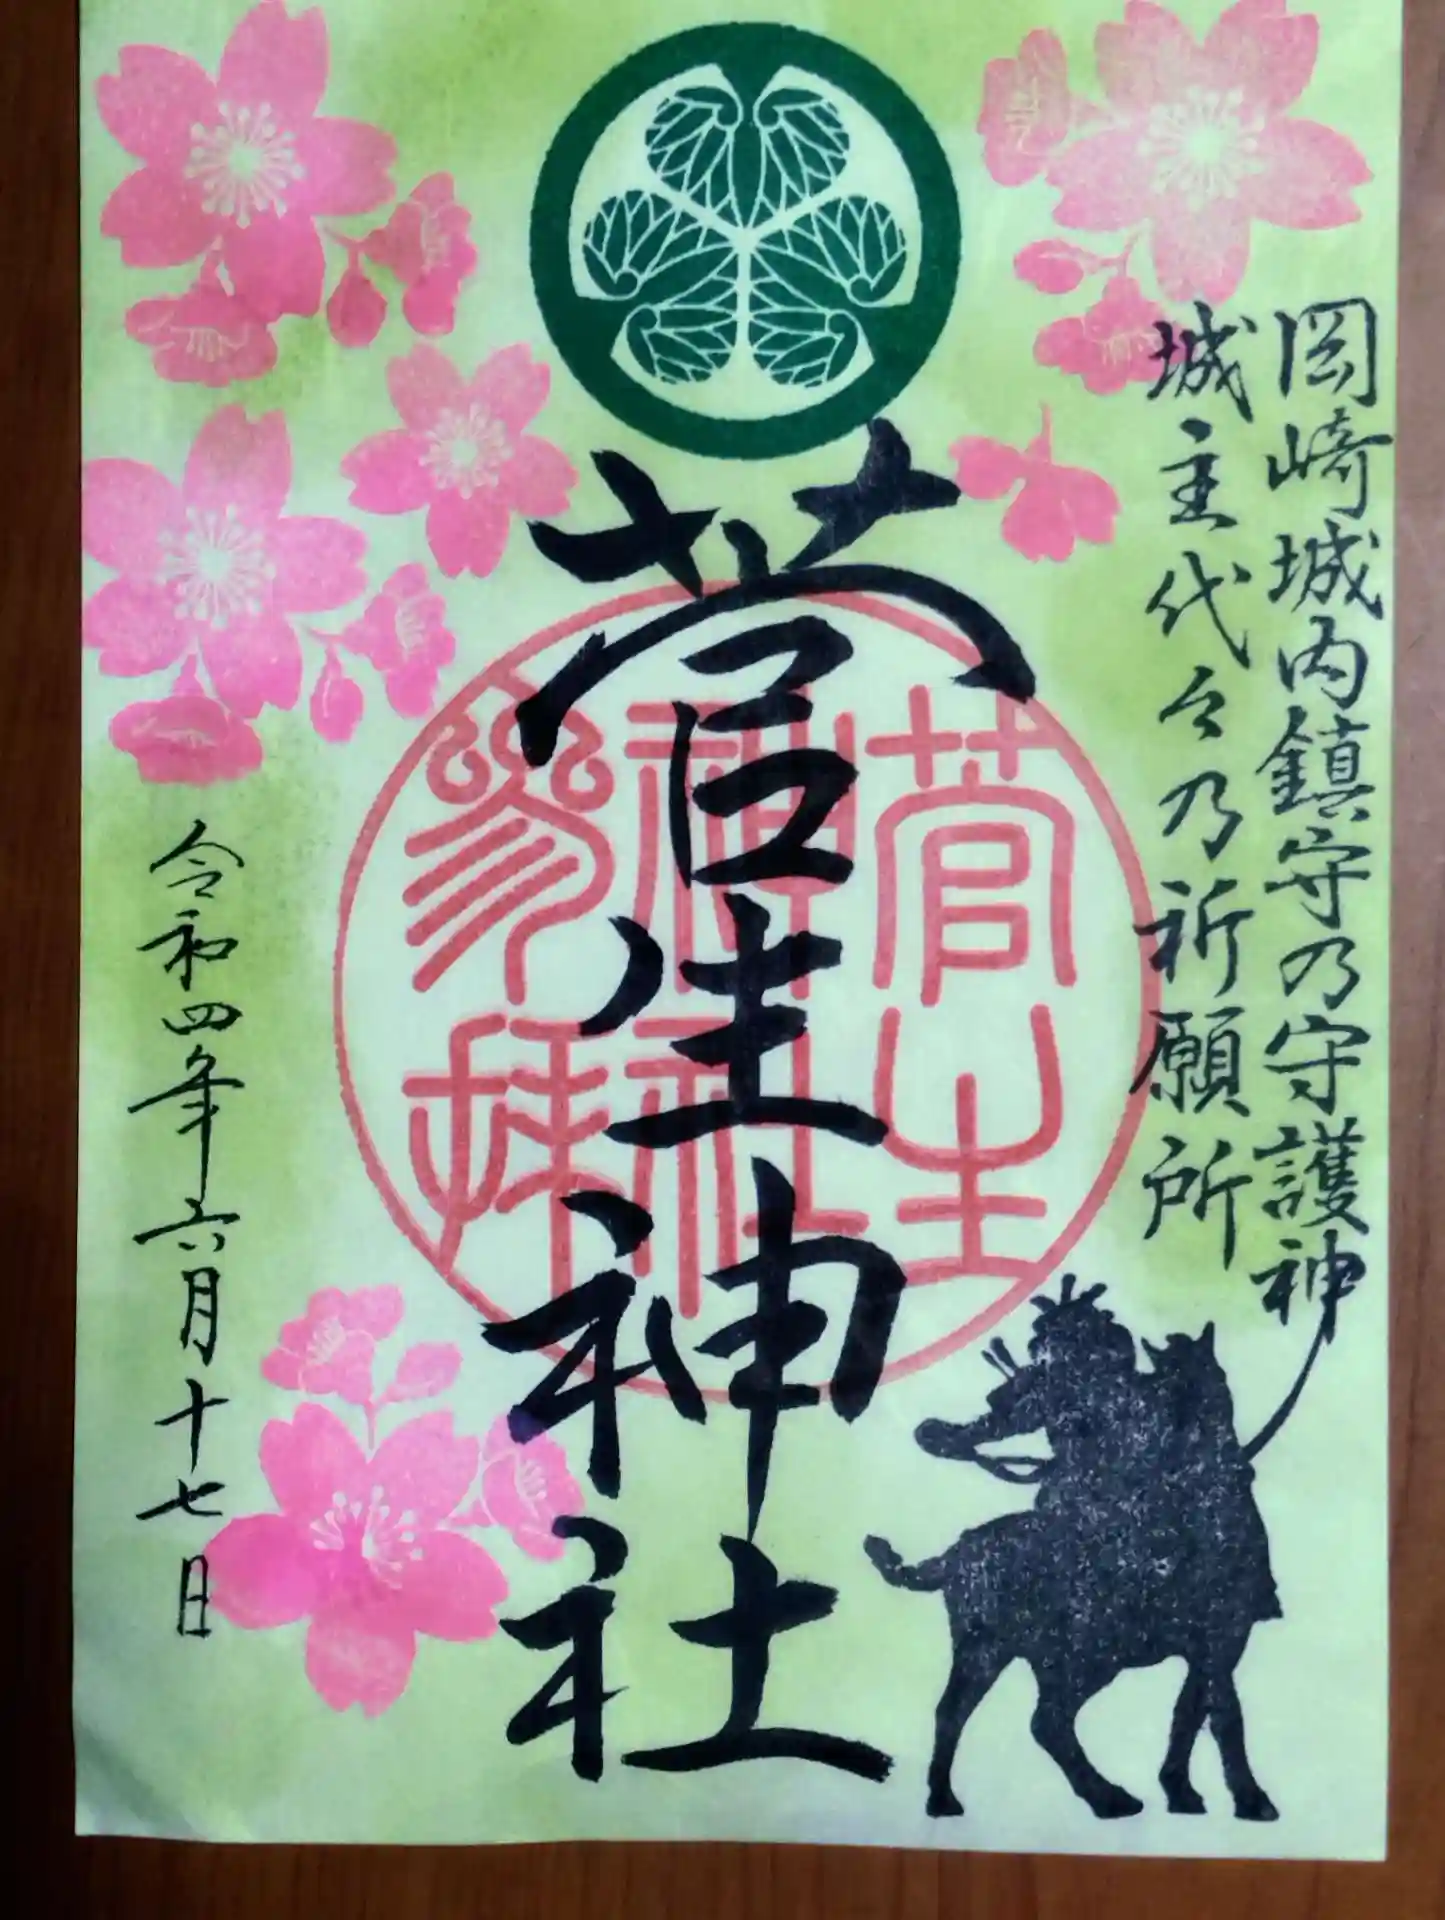 岡崎城内鎮守乃守護神
城主代々乃祈願所
菅生神社
菅生
神社
参拝
令和四年六月十七日